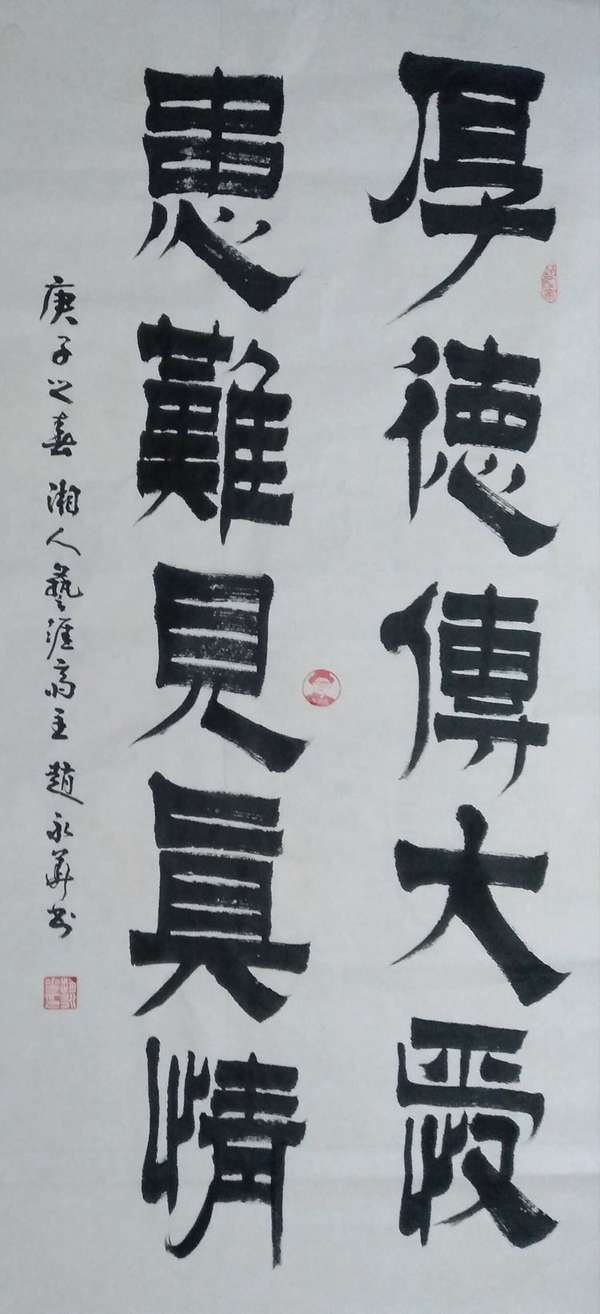 厚德傳大愛
患難見真情
庚子之春 湘人藝涯齋主 趙永華书